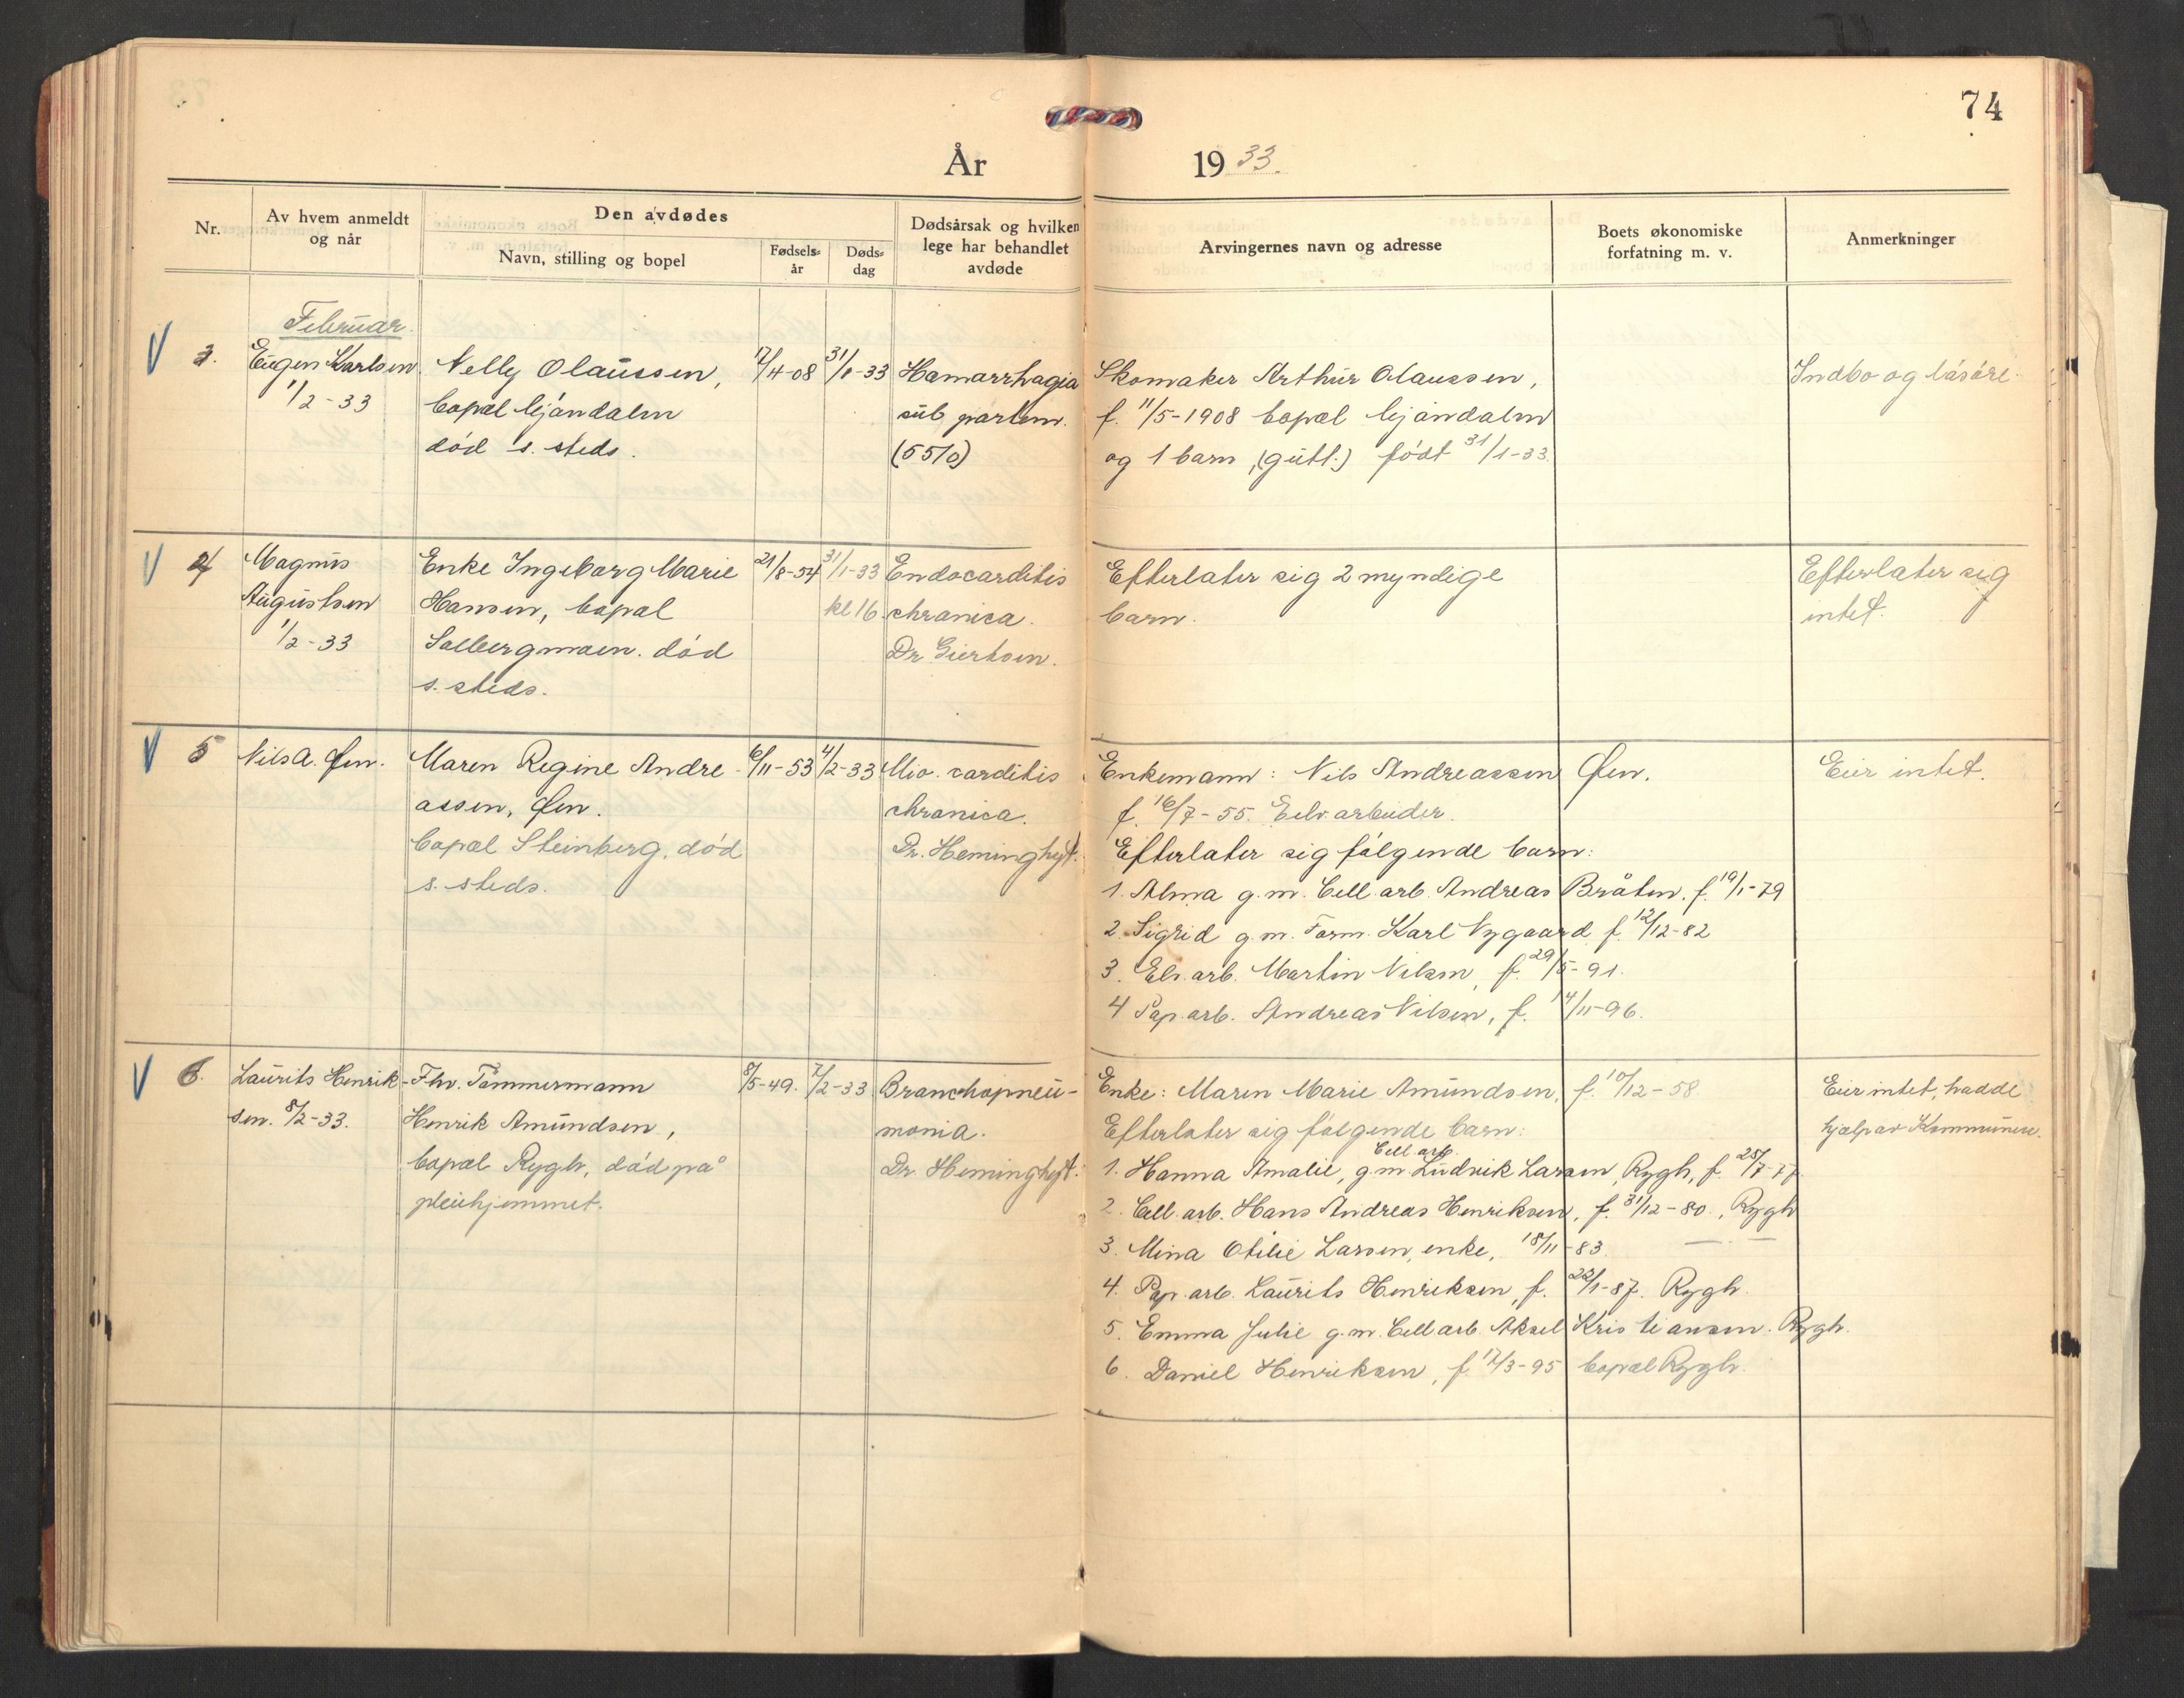 74
År 1933.
Nr.
Av hvem anmeldt
og når
Den avdødes
Navn, stilling og bopel
Fødsels-
år
Døds-
dag
Dødsårsak og hvilken
lege har behandlet
avdøde
Arvingernes navn og adresse
Boets økonomiske
forfatning m. v.
Anmerkninger
Februar.
3.
Eugen Karlsen
1/2-33
Nelly Olaussen,
bopæl Mjøndalen
død s. steds.
17/4-08
31/1-33
Hæmorrhagia
sub partem.
(5510)
Skomaker Arthur Olaussen,
f. 11/5-1908 bopæl Mjøndalen
og 1 barn, (gutt.) født 31/1-33.
Indbo og løsøre.
4
Magnus
Augustsen
1/2-33
Enke Ingeborg Marie
Hansen, bopæl
Solbergmoen. død
s. steds.
21/8-54
31/1-33
kl 16
Endocarditis
chronica.
Dr Giertsen.
Efterlater sig 2 myndige
barn.
Efterlater sig
intet.
5
Nils A. Øen.
Maren Regine Andre-
assen, Øen.
bopæl Steinberg, død
s. steds.
6/11-53
4/2-33
Mio. carditis
chronica.
Dr. Heminghyt.
Enkemann: Nils Andreassen Øen.
f. 16/7-55. Elv. arbeider.
Efterlater sig følgende barn:
1. Alma g.m. Cell. arb. Andreas Bråten. f. 19/1-79
2. Sigrid g.m. Form. Karl Nygaard f. 12/12-82
3. Elv. arb. Martin Nilsen, f. 29/5-91.
4 Pap. arb. Andreas Nilsen, f. 14/11-96.
Eier intet.
6.
Laurits Henrik-
sen. 8/2-33.
Fhv. Tømmermann
Henrik Amundsen,
bopæl Rygh, død på
pleiehjemmet.
8/5-49.
7/2-33
Bronchopneu-
monia.
Dr. Heminghyt.
Enke: Maren Marie Amundsen, f. 10/12-58.
Efterlater sig følgende barn:
Cell. arb.
1. Hanna Amalie, g.m. Ludvik Larsen, Rygh, f. 25/7-77
2. Cell. arb. Hans Andreas Henriksen, f. 31/12-80., Rygh
3. Mina Otilie Larsen, enke, 18/11-83. — " —
4. Pap. arb. Laurits Henriksen, f. 22/1-87. Rygh.
5. Emma Julie g.m. Cell arb. Aksel Kristiansen. Rygh.
6. Daniel Henriksen, f. 17/3-95 bopæl Rygh.
Eier intet, hadde
hjelp av Kommunen.